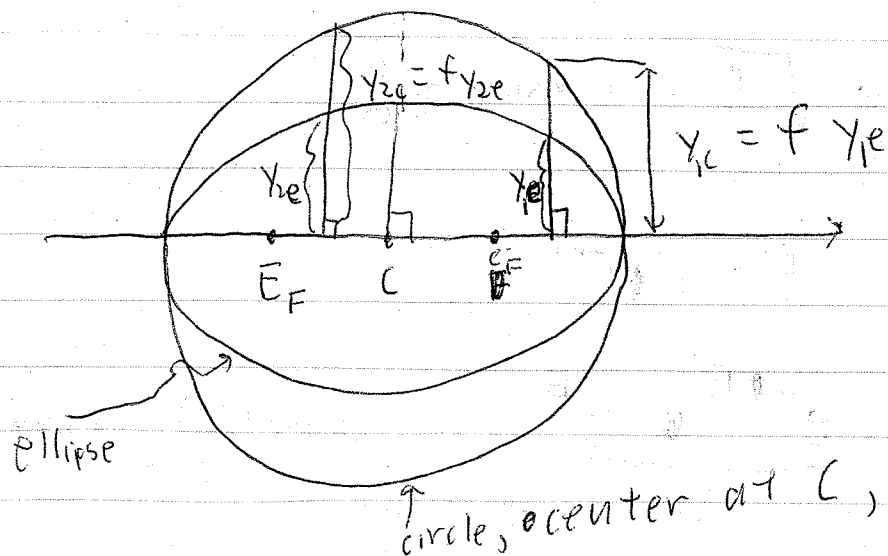 y2c = f y2e
y1c = f y1e
y2e
y1e
x
E_F
C
e_F
ellipse
circle, center at C,